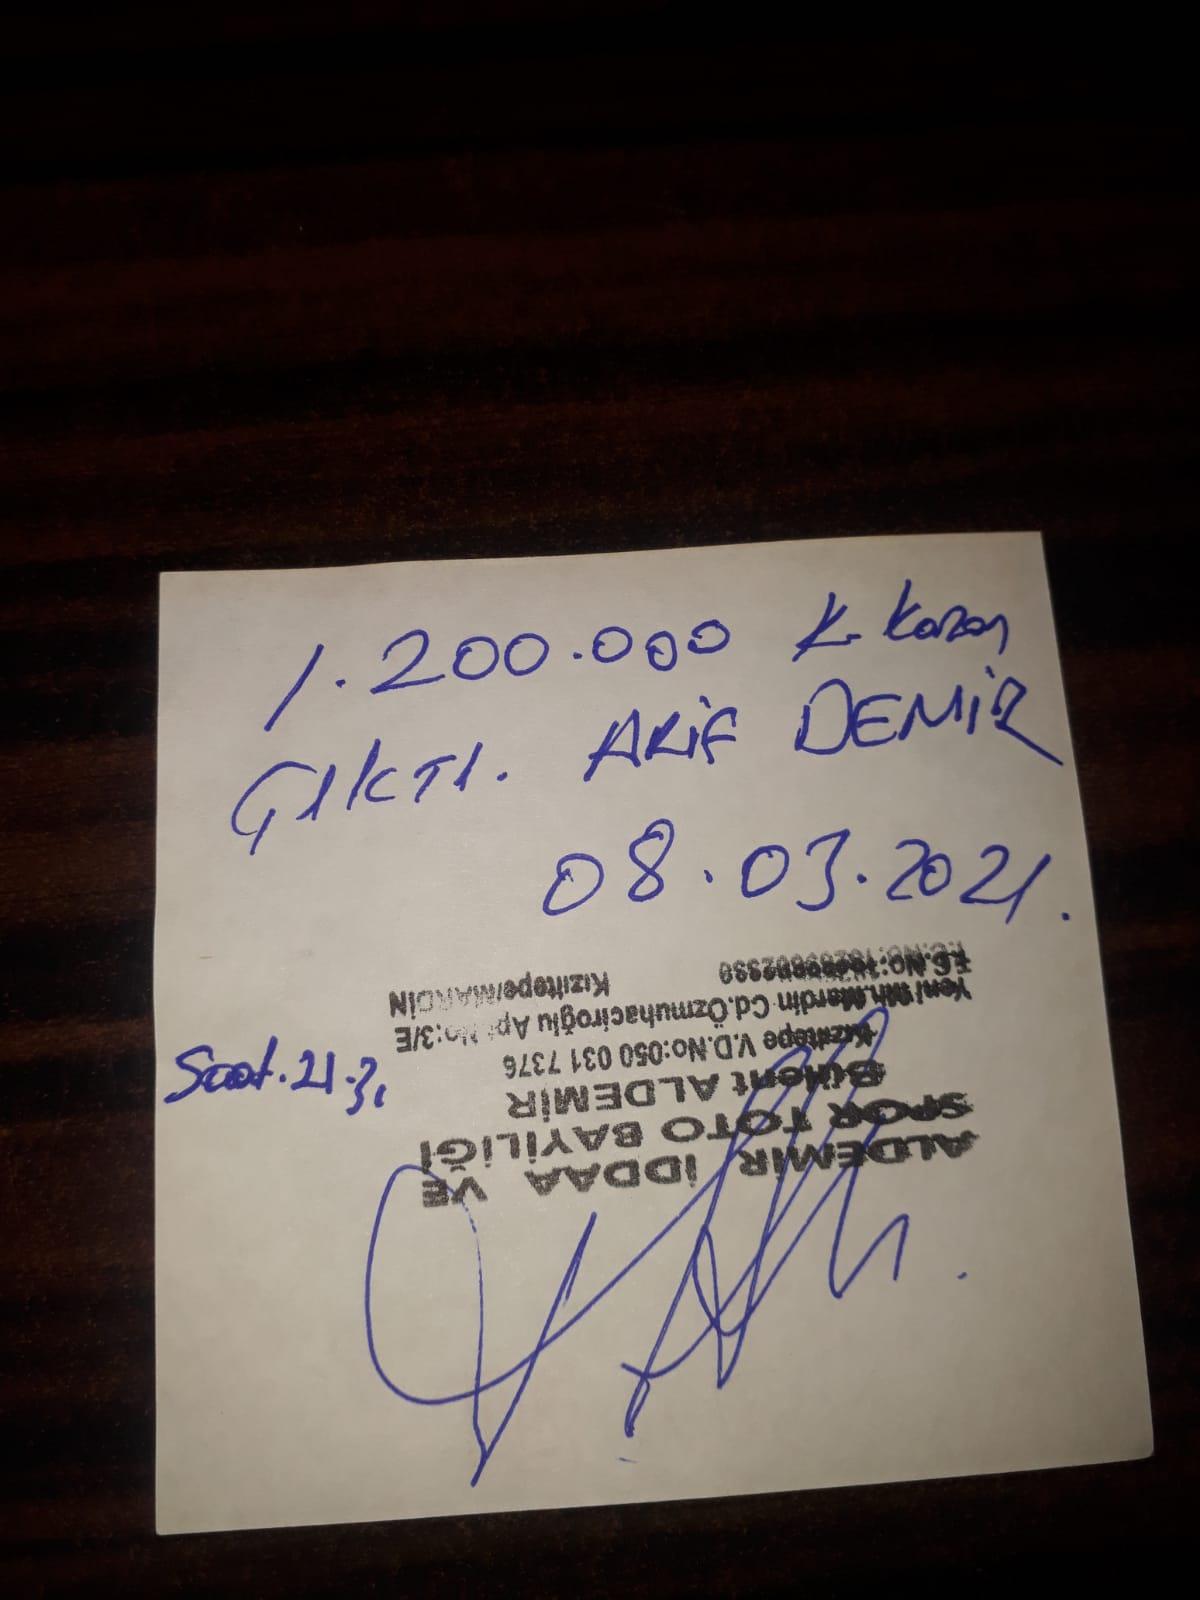 1.200.000 K. Kazan
ÇIKTI. ARİF DEMİR
08.03.2021.
Saat.21.3
ALDEMİR İDDAA VE
SPOR TOTO BAYİLİĞİ
Bülent ALDEMİR
Kızıltepe V.D.No:050 031 7376
Yeni Mh.Mardin Cd.Özmuhaciroğlu Apt.No:3/E
Kızıltepe/MARDİN